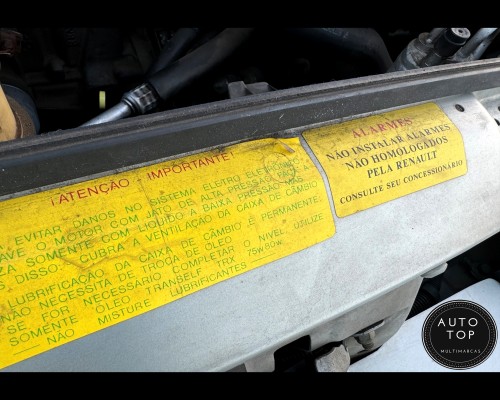 ¡ATENÇÃO IMPORTANTE!
EVITAR DANOS NO SISTEMA ELETRO ELETRÔNICO
LAVE O MOTOR COM JATO DE ALTA PRESSÃO
SOMENTE COM LÍQUIDO A BAIXA PRESSÃO MAS
DISSO, CUBRA A VENTILAÇÃO DA CAIXA DE CÂMBIO
LUBRIFICAÇÃO DA CAIXA DE CÂMBIO É PERMANENTE,
NÃO NECESSITA DE TROCA DE ÓLEO
SE FOR NECESSÁRIO COMPLETAR O NÍVEL, UTILIZE
SOMENTE ÓLEO TRANSELF TRX 75W80W.
NÃO MISTURE LUBRIFICANTES
ALARMES
NÃO INSTALAR ALARMES
NÃO HOMOLOGADOS
PELA RENAULT
CONSULTE SEU CONCESSIONÁRIO
AUTO
TOP
MULTIMARCAS